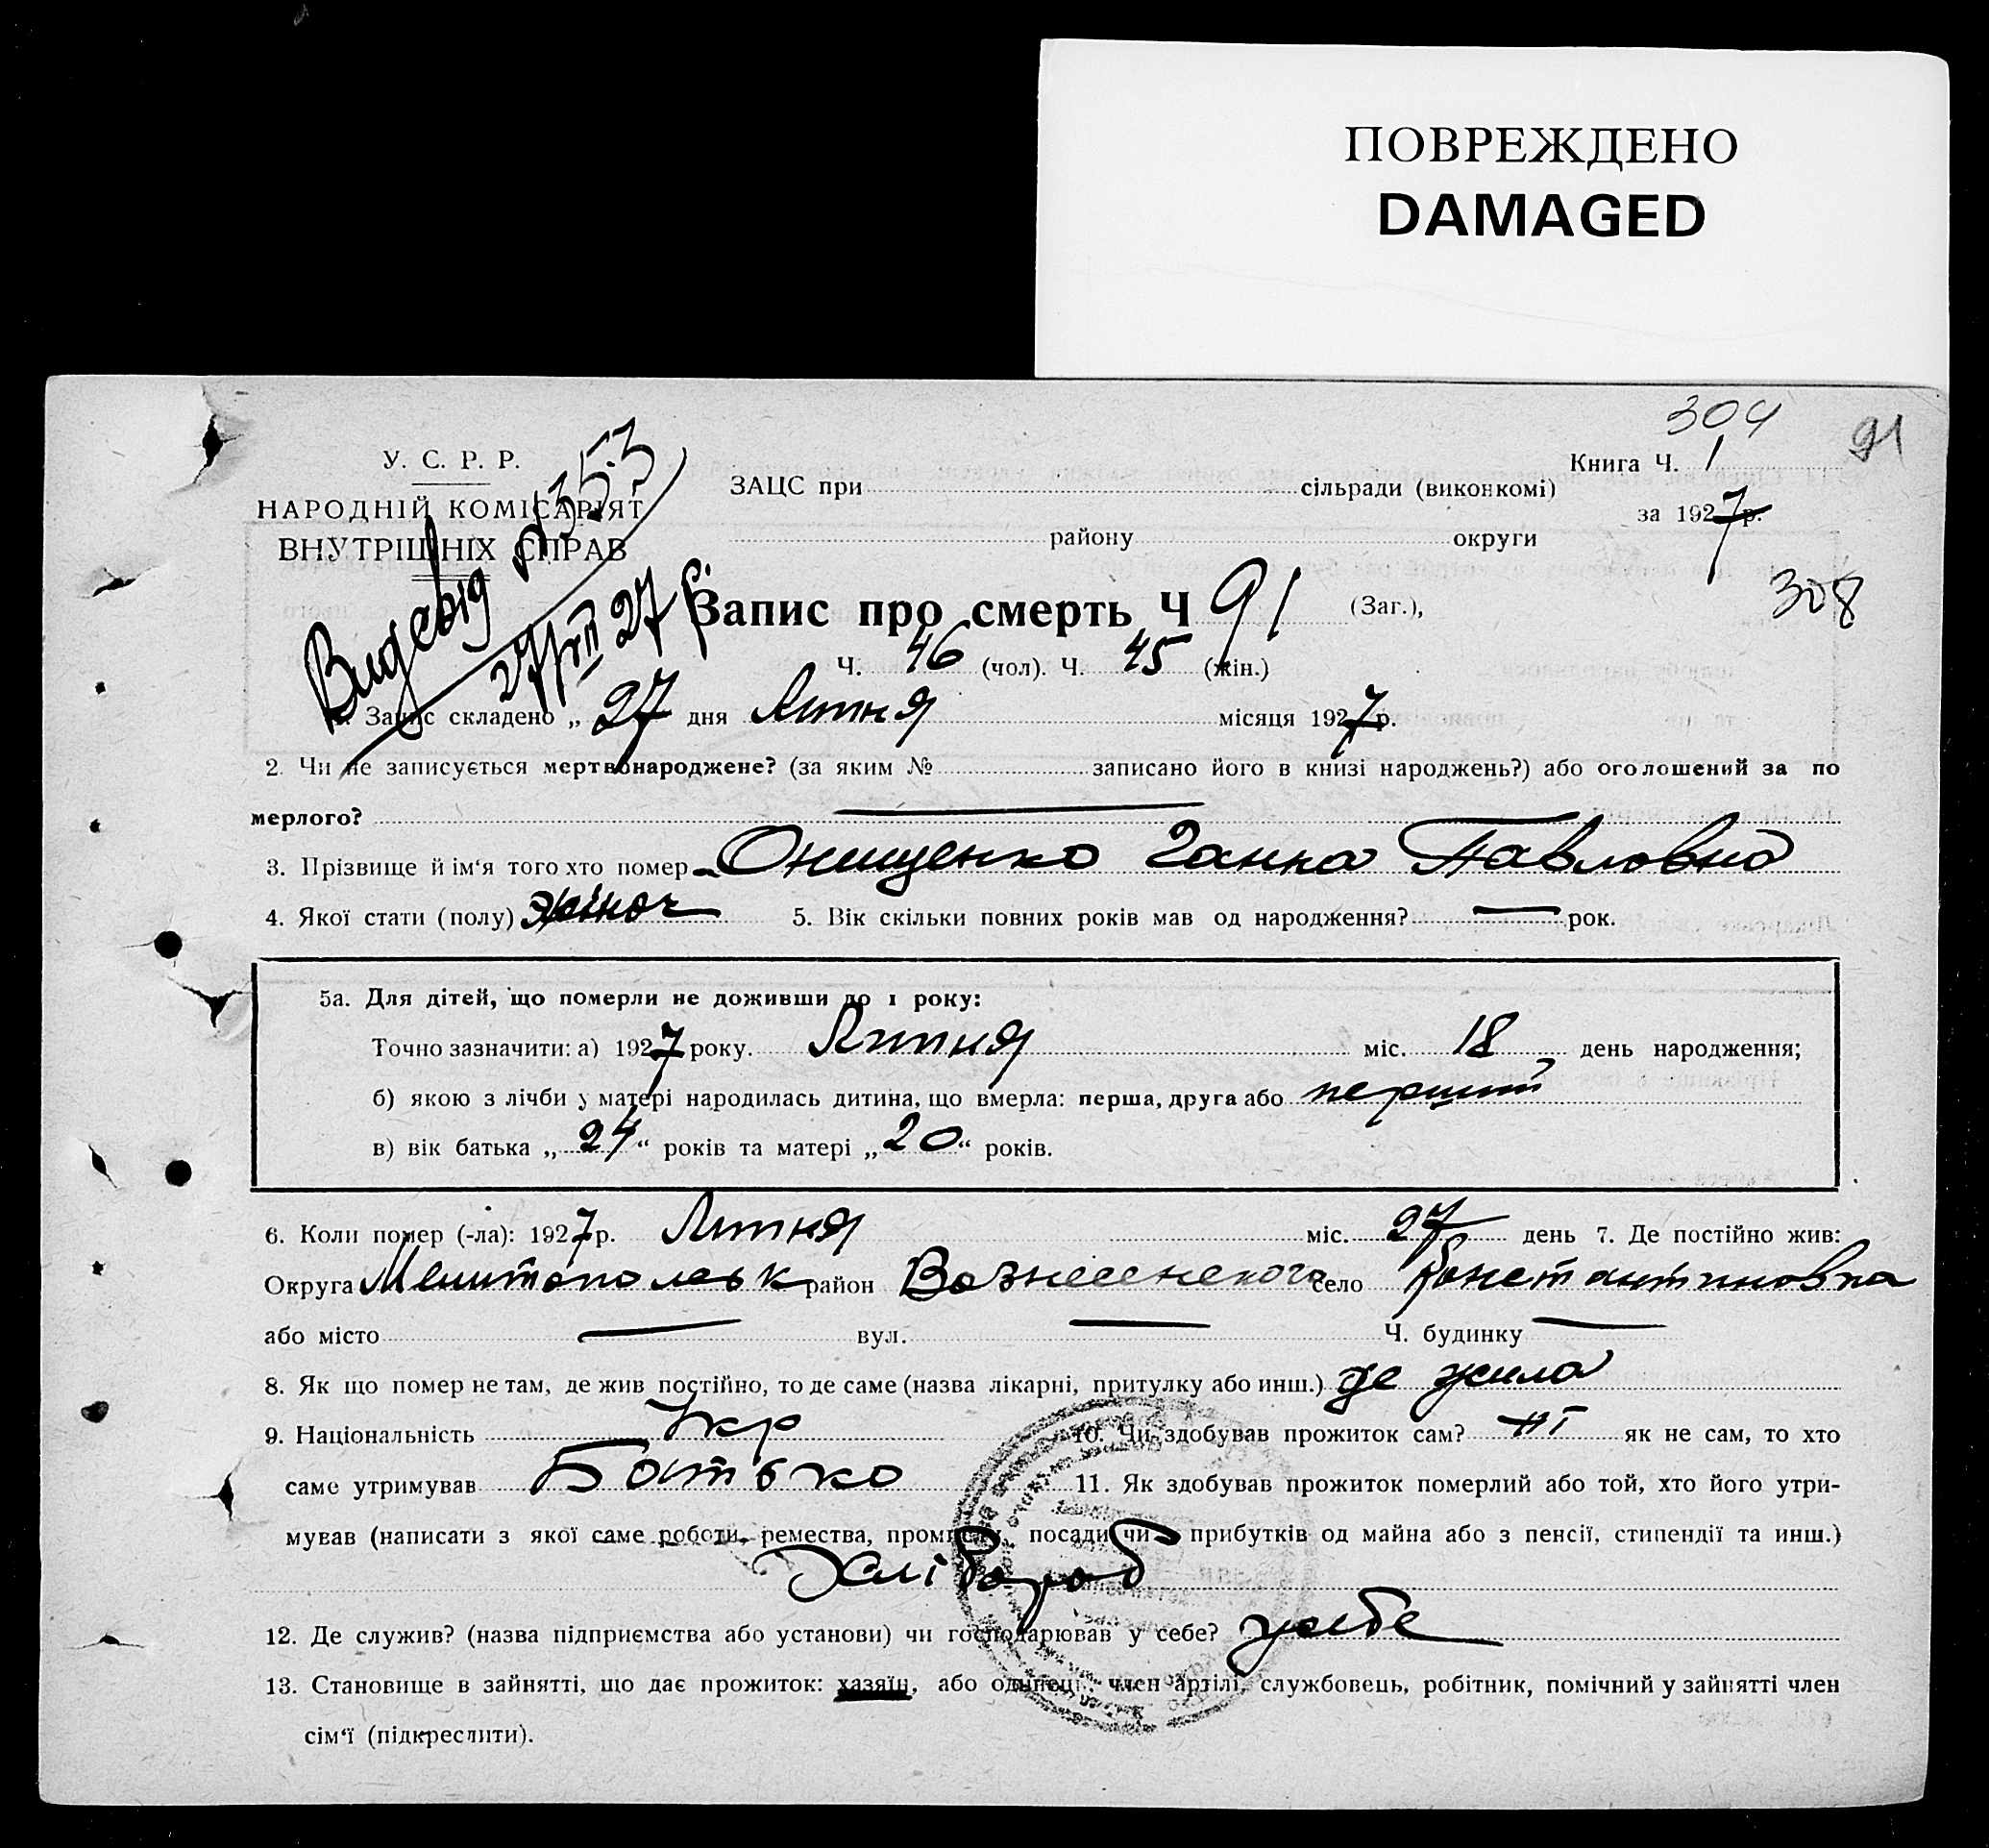 ПОВРЕЖДЕНО
DAMAGED
304
91
У. С. Р. Р.
НАРОДНІЙ КОМІСАРІЯТ
ВНУТРІШНІХ СПРАВ
ЗАЦС при сільради (виконкомі)
району округи
Книга Ч. 1
за 1927 р.
308
353
27/VII 27 р.
Запис про смерть Ч 91 (Заг.),
Ч. 46 (чол). Ч. 45 (жін.)
1. Запис складено „ 27 дня Липня місяця 1927 р.
2. Чи не записується мертвонароджене? (за яким № записано його в книзі народжень?) або оголошений за по
мерлого? —
3. Прізвище й ім'я того хто помер Онищенко Ганна Павловна
4. Якої стати (полу) жіноч 5. Вік скільки повних років мав од народження? — рок.
5а. Для дітей, що померли не доживши до 1 року:
Точно зазначити: а) 1927 року. Липня міс. 18 день народження;
б) якою з лічби у матері народилась дитина, що вмерла: перша, друга або
в) вік батька „ 24 “ років та матері „ 20 “ років.
6. Коли помер (-ла): 1927 р. Липня міс. 27 день 7. Де постійно жив:
Округа Мелитопольськ район Вознесенского село Константиновка
або місто — вул. — Ч. будинку —
8. Як що помер не там, де жив постійно, то де саме (назва лікарні, притулку або инш.) де жила
9. Національність Укр 10. Чи здобував прожиток сам? ні як не сам, то хто
саме утримував Батько 11. Як здобував прожиток померлий або той, хто його утри-
мував (написати з якої саме роботи, ремества, промислу, посади чи прибутків од майна або з пенсії, стипендії та инш.)
Хлібороб
12. Де служив? (назва підприємства або установи) чи господарював у себе? у себе
13. Становище в зайнятті, що дає прожиток: хазяїн, або одинець, член артілі, службовець, робітник, помічний у зайнятті член
сім'ї (підкреслити).